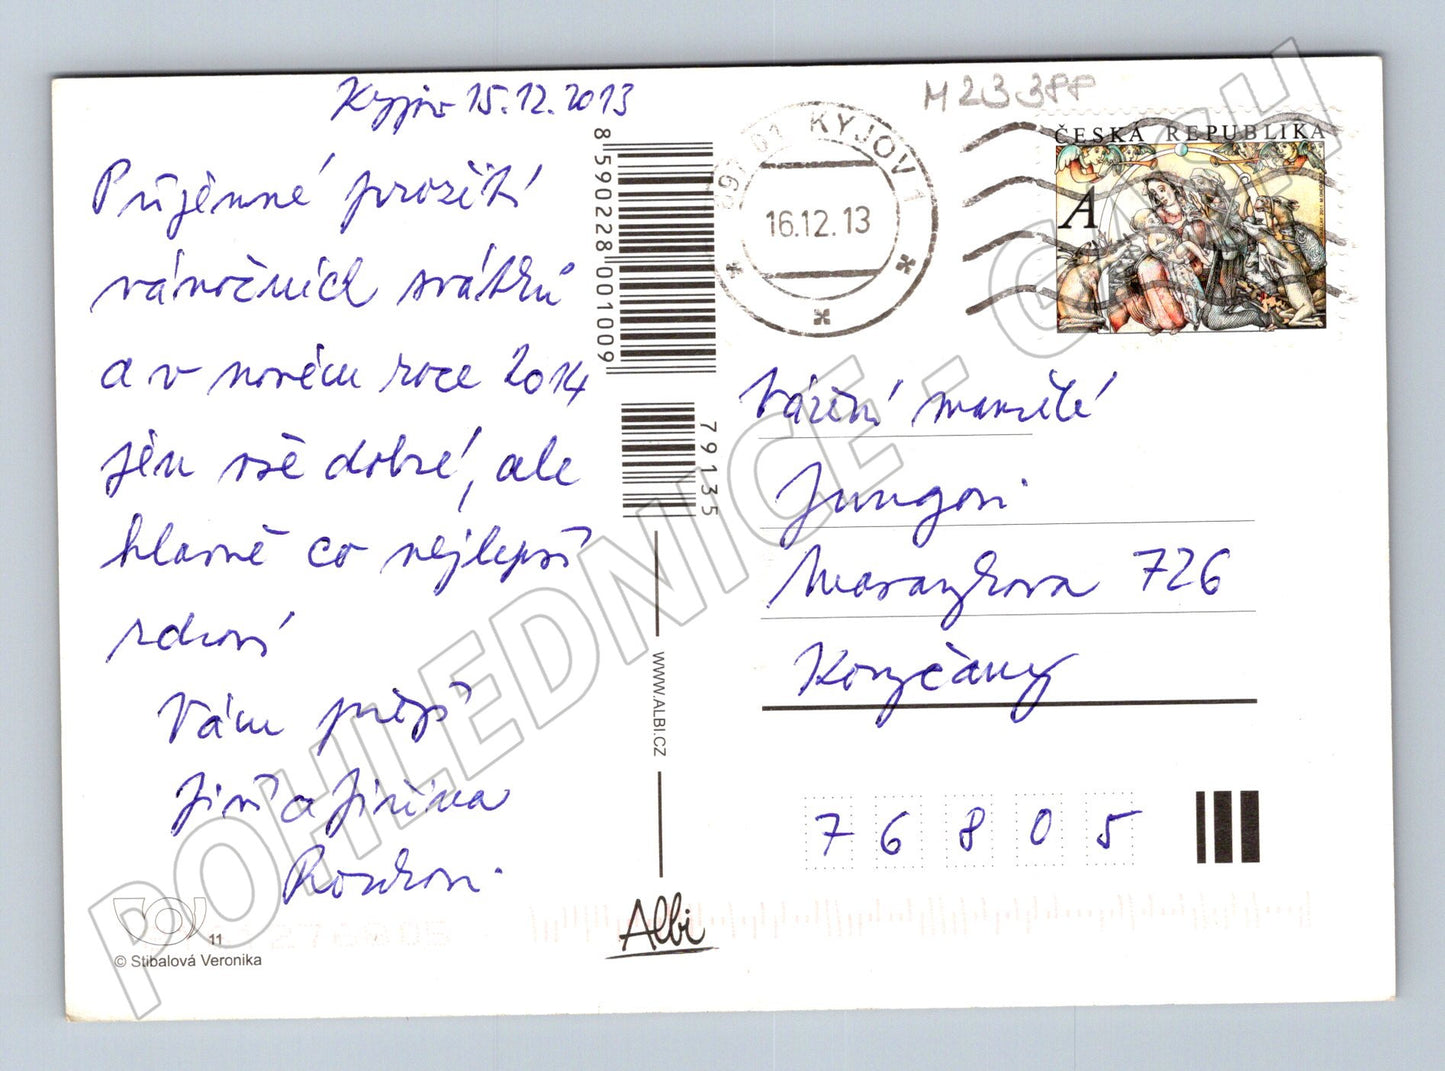 Kyjov 15.12.2013
Příjemné prožití
vánočních svátků
a v novém roce 2014
jen vše dobré, ale
hlavně co nejlepší
zdraví
Vám přejí
Jiří a Jiřina
8 590228 001009
79135
WWW.ALBI.CZ
11
© Stibalová Veronika
Albi
M233PP
697 01 KYJOV 1
16.12.13
ČESKÁ REPUBLIKA
A
Vážení manželé
Jungovi
Masarykova 726
Koryčany
76805
POHLEDNICE - CASH